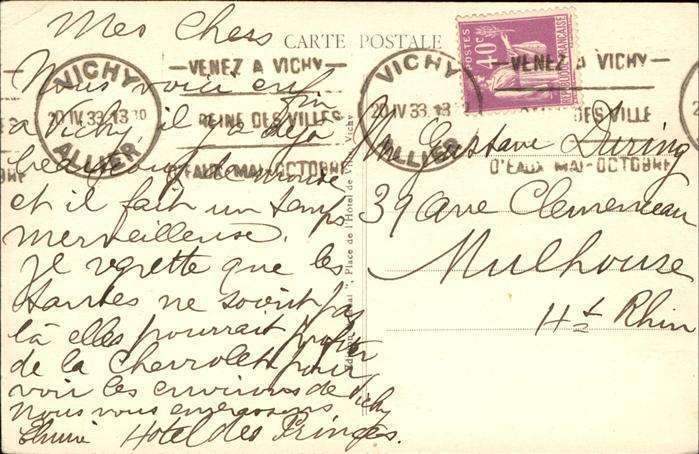 Mes Chers
CARTE POSTALE
POSTES
40c
REPUBLIQUE FRANCAISE
VICHY
20 IV 33. 13
ALLIER
VENEZ A VICHY
REINE DES VILLES
D'EAUX MAI-OCTOBRE
VICHY
20 IV 33. 13
ALLIER
VENEZ A VICHY
DES VILLE
D'EAUX MAI-OCTOBRE
Nous voici enfin
a Vichy, il y a déjà
beaucoup de monde
et il fait un temps
merveilleuse.
Je regrette que les
ne soient pas
là elles pourrait profiter
de la Chevrolet pour
voir les environs de Vichy
nous vous embrassons
Hotel des Princes.
Place de l'Hôtel de Ville, Vichy
Mr Gustave During
39 Ave Clemenceau
Mulhouse
Ht Rhin